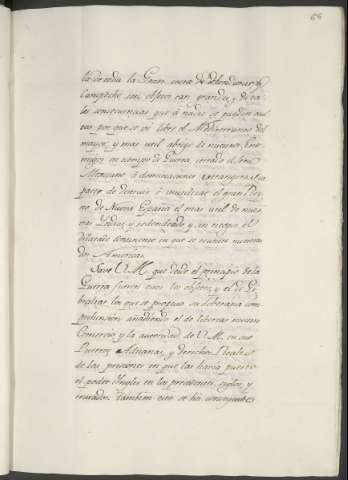 68
la donda la Gran costa de Honduras y
Campeche son objetos tan grandes, y de ta
les consecuencias que á nadie se pueden ocul
tar por que se ve libre el Mediterraneo del
mayor, y mas util abrigo de nuestros Ene
migos en tiempo de Guerra, cerrado el Seno
Mexicano á dominaciones extrangeras ca
paces de destruir ó inutilizar el gran Rey
no de Nueva España el mas util de nues
tras Yndias, y redondeado y en recogido el
dilatado continente en que se reunen nuestras
dos Americas.
Save V. M. que desde el principio de la
Guerra fueron estos los objetos, y el de Gi
braltar los que se propuso su soberana com
prehension, añadiendo el de libertar nuestro
Comercio, y la autoridad de V. M. en sus
Puertos, Aduanas, y derechos Reales
de las prisiones en que las havia puesto
el poder Ingles en los precedentes siglos, y
tratados. Tambien esto se ha conseguido